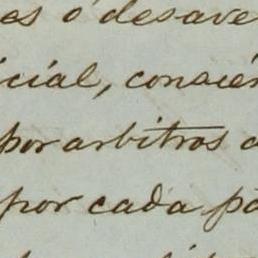 es ó desave
icial, concien
por arbitros a
por cada pa